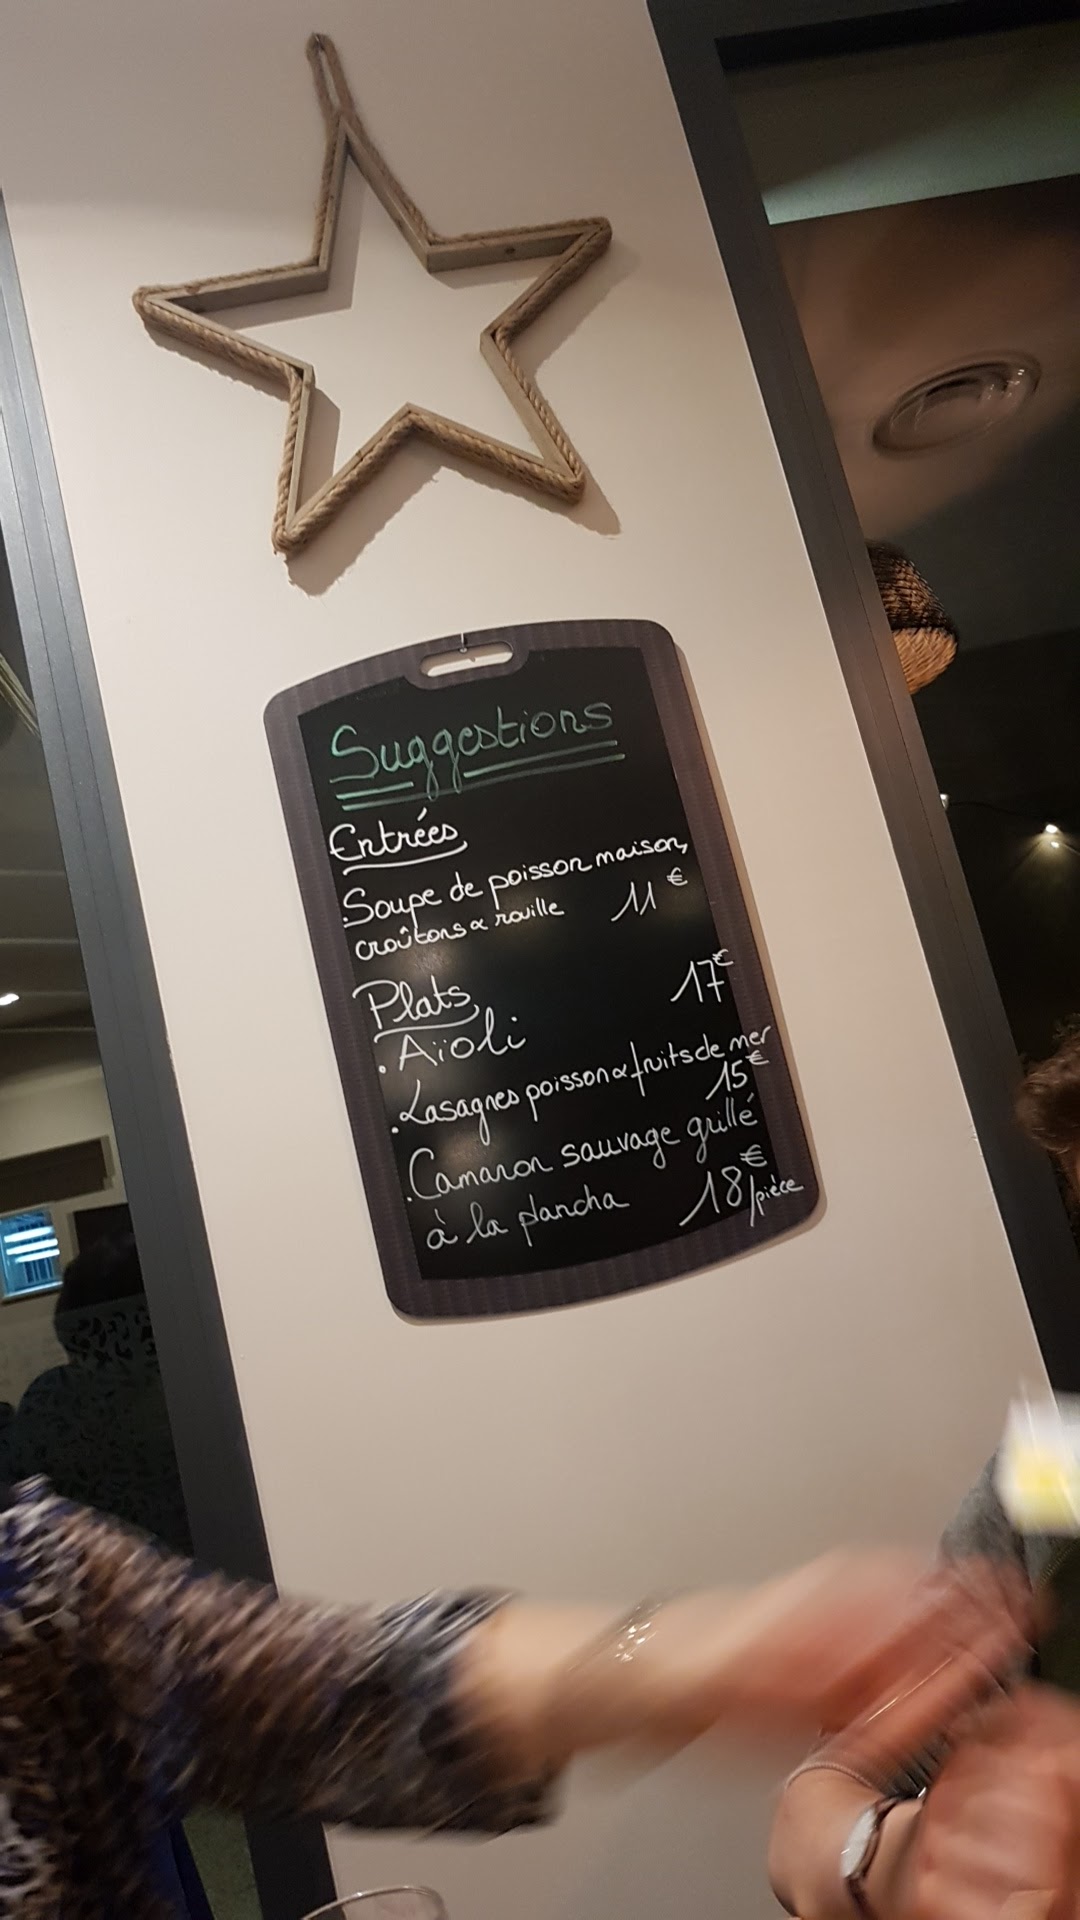 Suggestions
Entrées
.Soupe de poisson maison,
croûtons & rouille 11€
Plats
.Aïoli 17€
.Lasagnes poisson & fruits de mer
15€
.Camaron sauvage grillé
à la plancha 18€/pièce